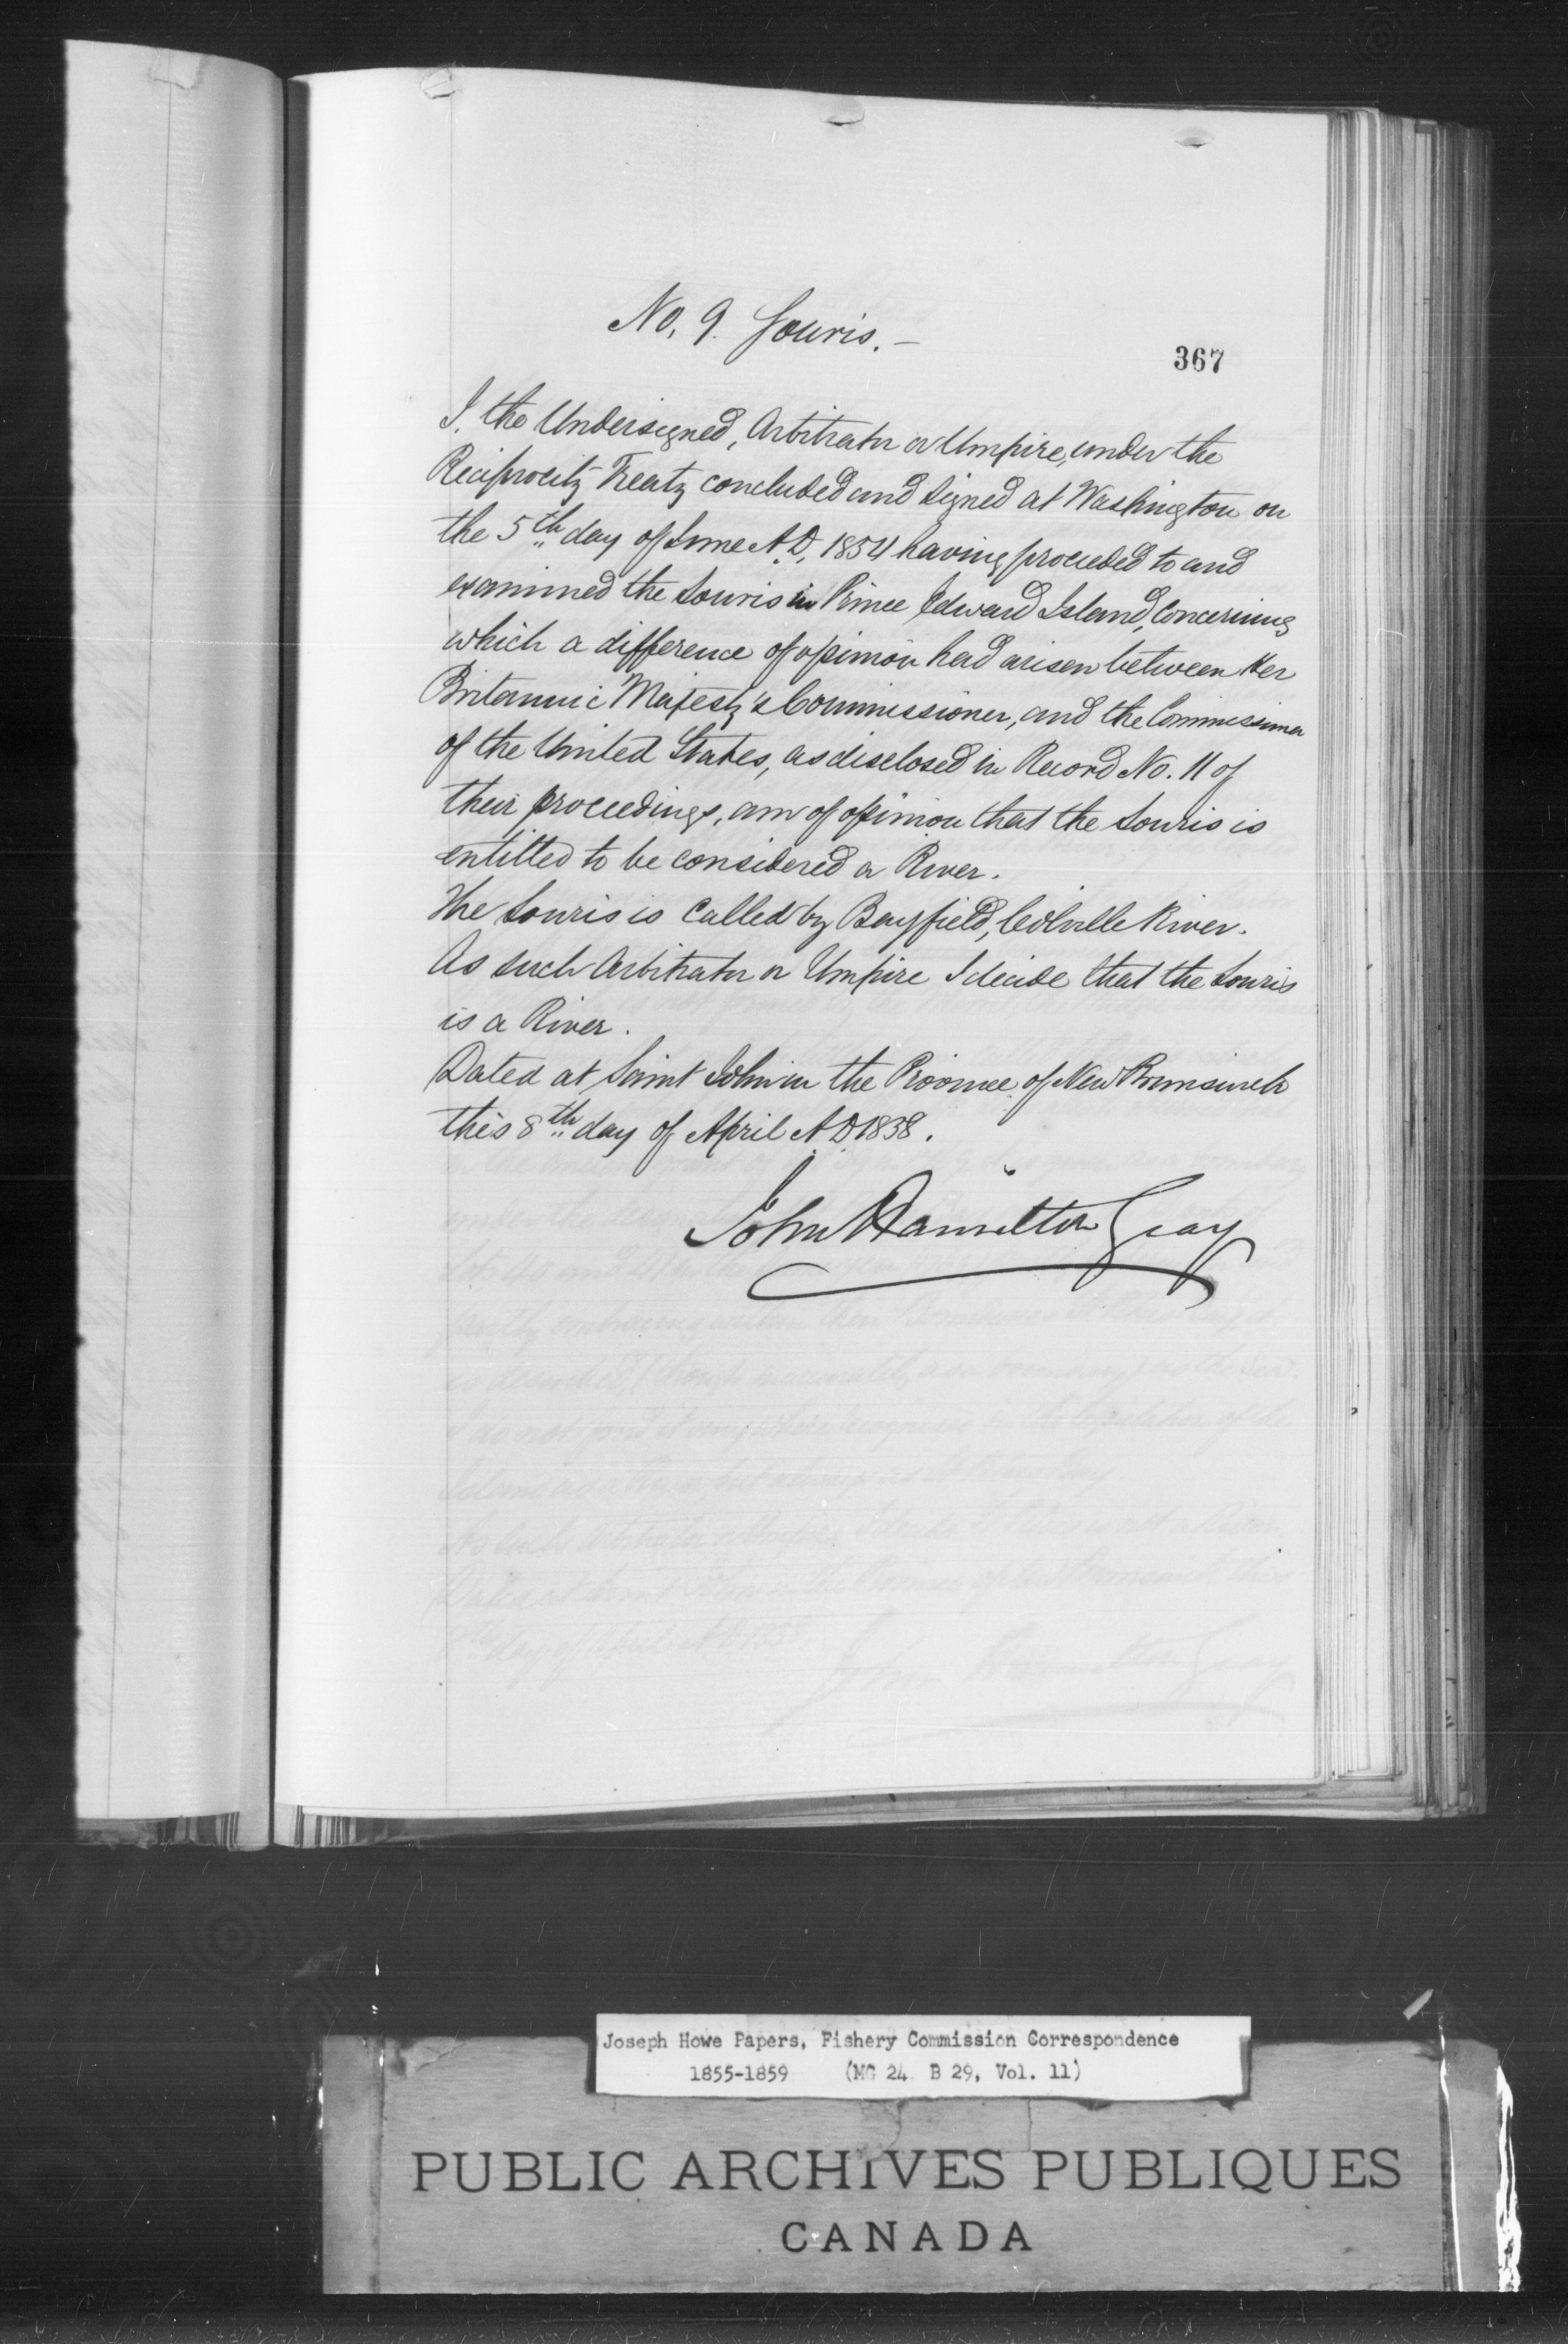 No. 9. Souris. —
367
I, the Undersigned, Arbitrator or Umpire, under the
Reciprocity Treaty concluded and signed at Washington on
the 5th day of June A.D. 1854 having proceeded to and
examined the Souris in Prince Edward Island, concerning
which a difference of opinion had arisen between Her
Britannic Majesty's Commissioner, and the Commissioner
of the United States, as disclosed in Record No. 11 of
their proceedings, am of opinion that the Souris is
entitled to be considered a River.
The Souris is called by Bayfield, Colville River.
As such Arbitrator or Umpire I decide that the Souris
is a River.
Dated at Saint John in the Province of New Brunswick
this 8th day of April A.D. 1858.
John Hamilton Gray
Joseph Howe Papers, Fishery Commission Correspondence
1855-1859 (MG 24 B 29, Vol. 11)
PUBLIC ARCHIVES PUBLIQUES
CANADA